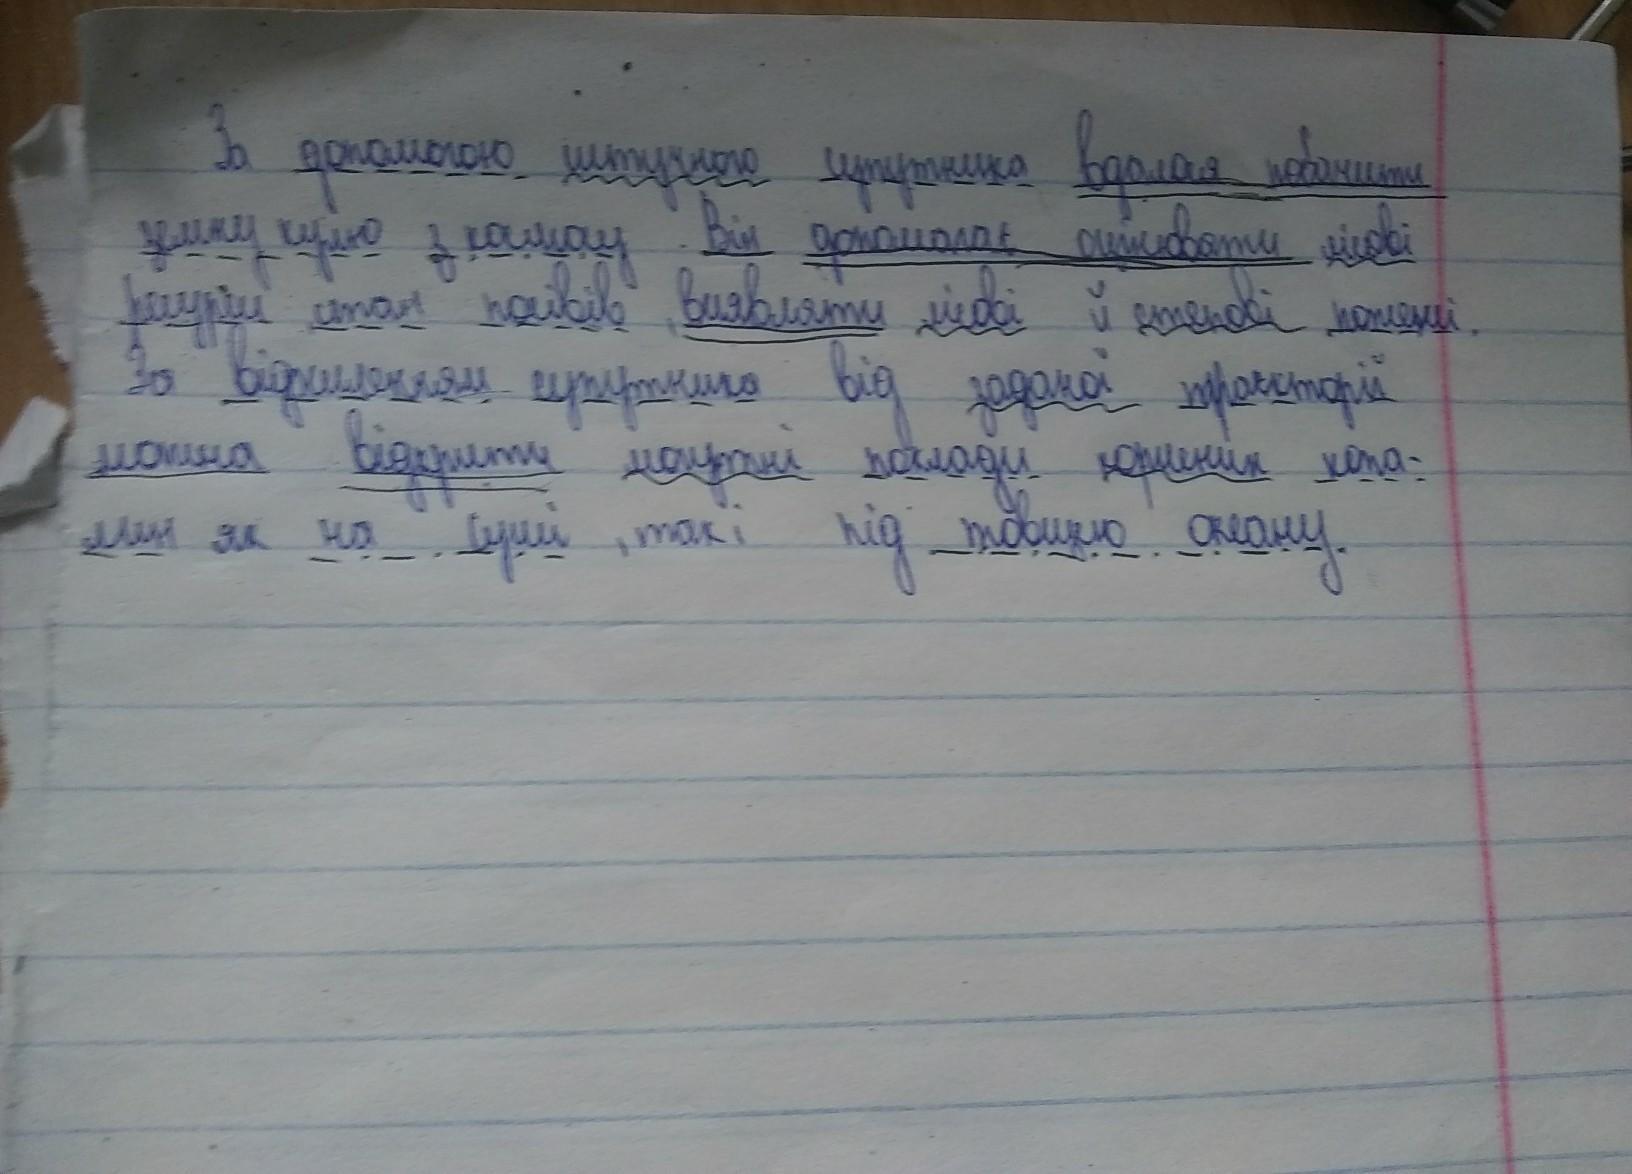 За допомогою штучного супутника вдалася побачити
земну кулю з космосу. Він допомагає оцінювати лісові
ресурси стан посівів, виявляти лісові й степові пожежі.
За відхиленням супутника від заданої траєкторії
можна відкрити могутні поклади корисних копа-
лин як на суші, так і під товщею океану.